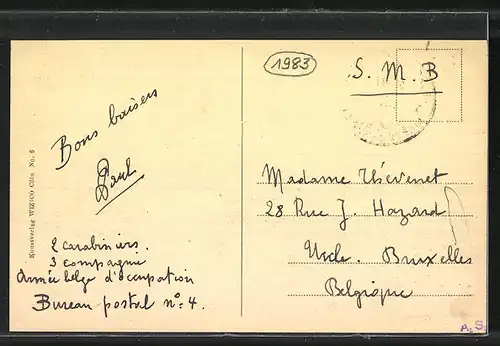 Bons baisers
Paul
2 carabiniers.
3 compagnie
Armée belge d'occupation
Bureau postal nº 4.
Kunstverlag WIZICO Cöln No. 6
1983
S. M. B
Madame Thévenet
28 Rue J. Hazard
Uccle. Bruxelles
Belgique
A. S.